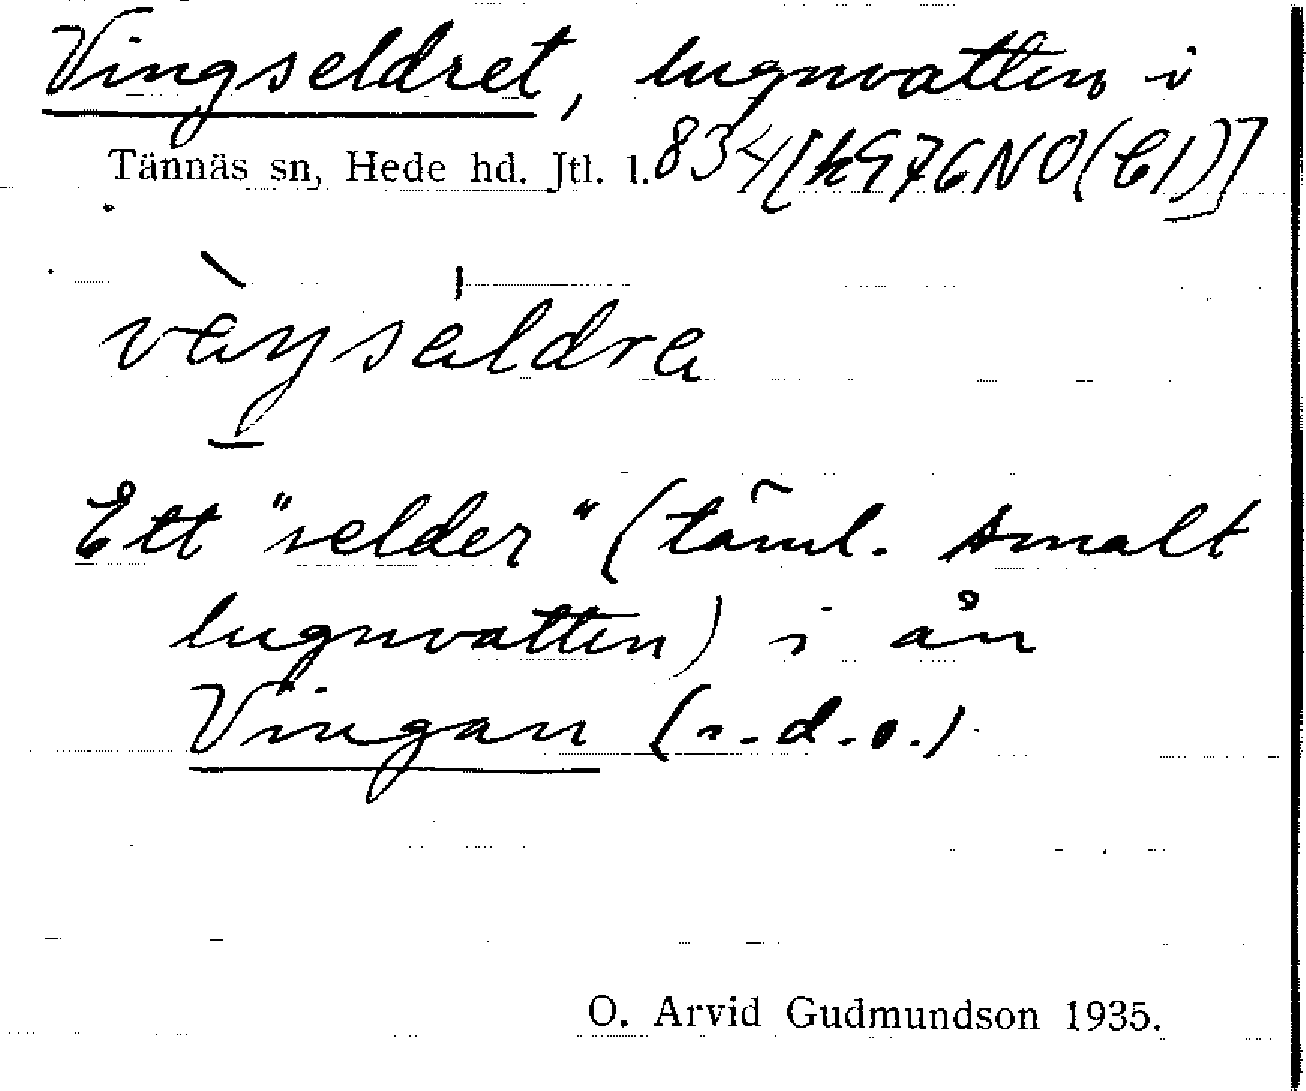 Vingseldret, lugnvatten i
Tännäs sn, Hede hd. Jtl. l. 834 [kG76NO(C1)]
Ett "selder" (täml. smalt
lugnvatten) i ån
Vingan (s.d.o.)
O. Arvid Gudmundson 1935.